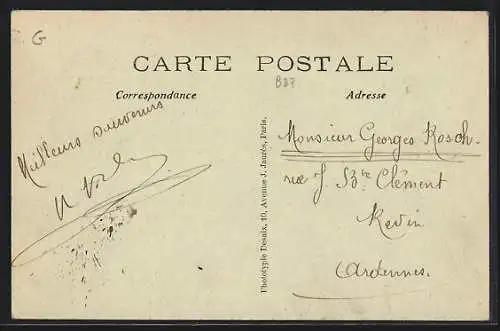 G
CARTE POSTALE
B37
Correspondance
Adresse
Meilleurs souvenirs
Phototypie Desaix, 10, Avenue J. Jaurès, Paris.
Monsieur Georges Rosch.
rue J. Bte Clément
Revin
Ardennes.